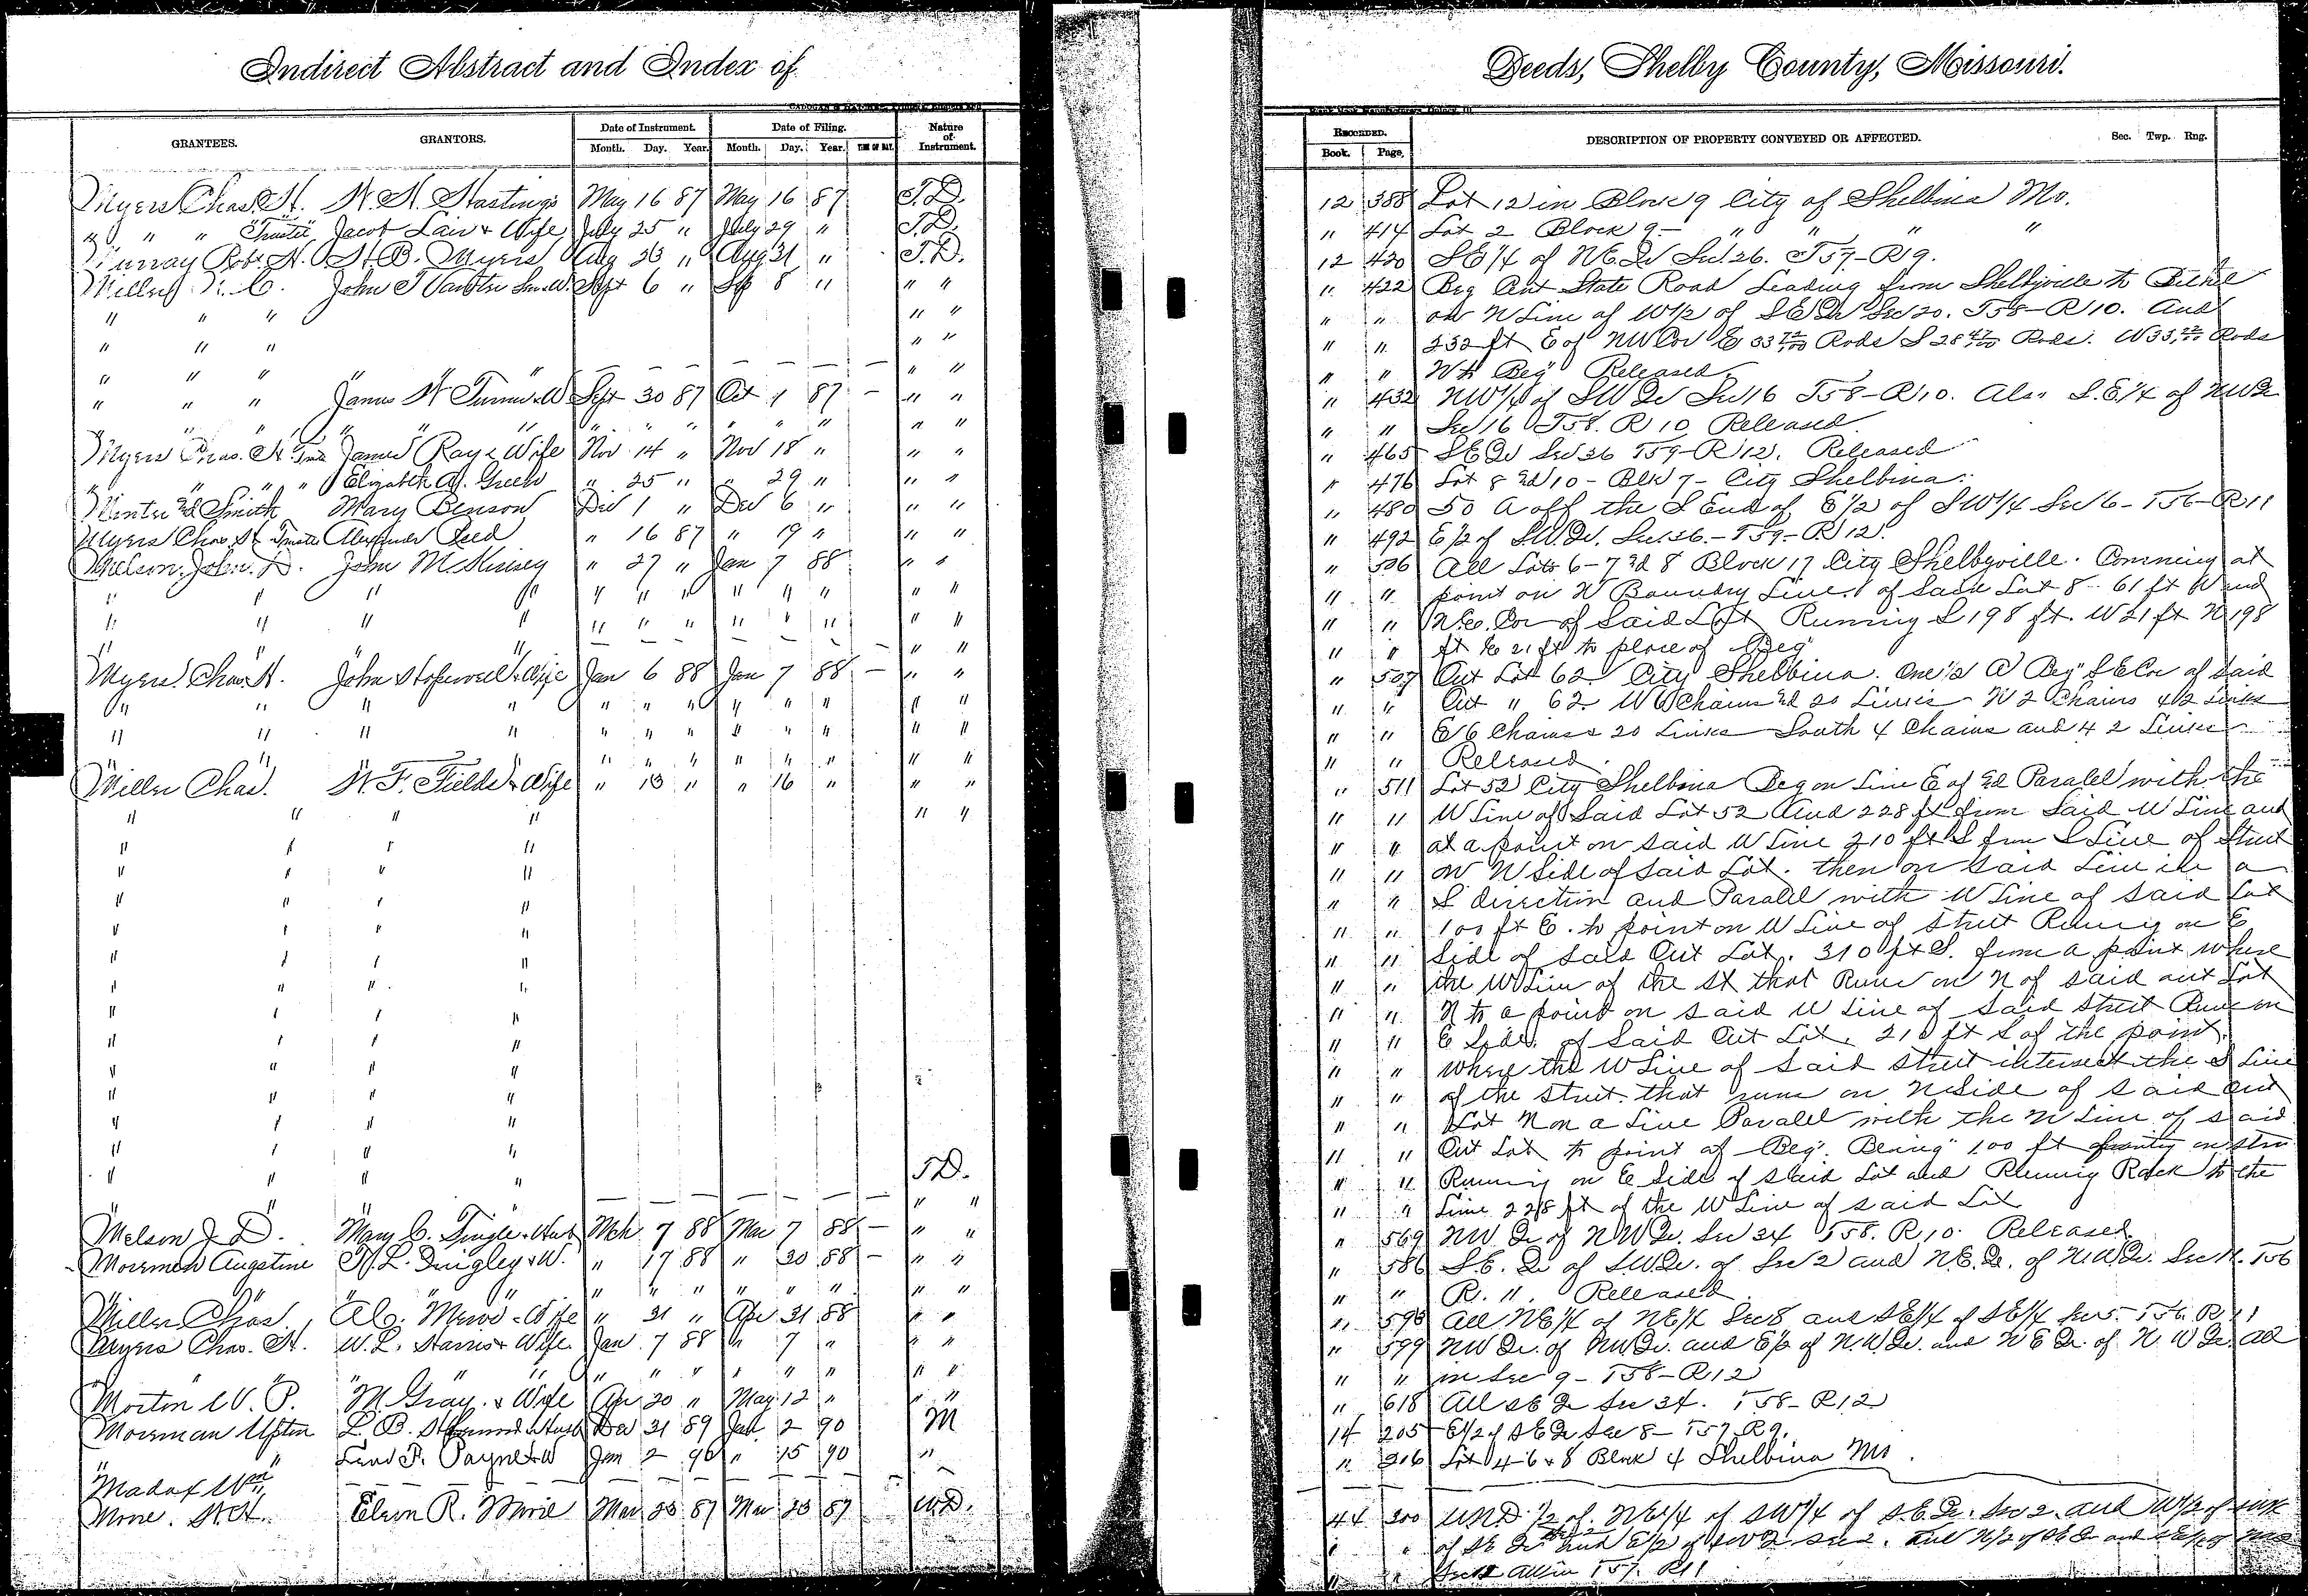 Indirect Abstract and Index of Deeds, Shelby County, Missouri.
GRANTEES. GRANTORS. Date of Instrument. Date of Filing. Nature of Instrument. RECORDED. DESCRIPTION OF PROPERTY CONVEYED OR AFFECTED. Sec. Twp. Rng.
Month. Day. Year. Month. Day. Year. TIME OF DAY. Book. Page.
Myers Chas. H. Hastings May 16 87 May 16 87 T.D. 12 388 Lot 12 in Block 9 City of Shelbina Mo.
" " " Trustee Jacob Lair & Wife July 25 " July 29 " T.D. " 414 Lot 2 Block 9 - " " "
Murray Robt. H. B. Myers Aug " Aug 31 " T.D. 12 420 SE 1/4 of NE Qr Sec 26. T57-R9.
Miller C. John T Sept 6 " Sep 8 " " " " 422 Beg State Road Leading from Shelbyville to Bethel
" " " " " " " on N Line of W 1/2 of SE Qr Sec 20. T58-R10. And
" " " " " " " 232 ft E of NW Cor E 33 Rods S 28 Rods. W 33 Rods
" " " " " " " Beg" Released
" " " James Turner & W Sept 30 87 Oct 1 87 - " " " 432 NW 1/4 of SW Qr Sec 16 T58-R10. Also S.E 1/4 of NW Qr
" " Sec 16 T58. R10 Released
Myers Chas. H. James Ray & Wife Nov 14 " Nov 18 " " " " 465 SE Qr Sec 36 T59-R12. Released
" " " Elizabeth A. Green " 25 " " 29 " " " " 476 Lot 8 & 10 - Blk 7 - City Shelbina.
Smith Mary Benson Dec 1 " Dec 6 " " " " 480 50 A off the S End of E 1/2 of SW 1/4 Sec 6 - T56-R11
Myers Chas. H. Trustee Alexander Reed " 16 87 " 19 " " " " 492 E 1/2 of S.W. Qr. Sec. 36.-T59-R12.
John. D. John McKinsey " 27 " Jan 7 88 " " " 506 All Lots 6-7 & 8 Block 17 City Shelbyville. Comming at
" " " " " " " " " " " " " " point on N Boundry Line of Said Lot 8 61 ft W
" " " " " " " " " " " " " " N.E. Cor of Said Lot Running S 198 ft. W 21 ft N 198
" " " " ft E 21 ft to place of Beg
Myers Chas. H. John Hopewell & Wife Jan 6 88 Jan 7 88 - " " " 507 Out Lot 62 City Shelbina. One 1/2 A Beg" SE Cor of Said
" " " " " " " " " " " " " " Out " 62 W 6 Chains & 20 Links N 2 Chains 42 Links
" " " " " " " " " " " " " " E 6 Chains & 20 Links South 4 Chains and 42 Links
" " " " " " " " " " Released.
Miller Chas. Fields & Wife " 13 " " 16 " " " " 511 Lot 52 City Shelbina Beg on Line E of & Paralel with the
" " " " " " " " W Line of Said Lot 52 And 228 ft from Said W Line and
" " " " " " at a point on said W Line 210 ft S from S Line of Street
" " " " " " on N Side of Said Lot. then on said Line in a
" " " " " " S direction and Paralel with W Line of said Lot
" " " " " " 100 ft E. to point on W Line of Street Runing on E
" " " " " " Side of said Out Lot. 310 ft S. from a point where
" " " " " " the W Line of the St that Runs on N of said out Lot
" " " " " " N to a point on said W Line of said Street Runs on
" " " " " " E Side. of Said Out Lot. 210 ft S of the point.
" " " " " " where the W Line of said Street intersect the S Line
" " " " " " of the Street that runs on N Side of said Out
" " " " " " Lot N on a Line Paralel with the N Line of said
" " " " " " Out Lot to point of Beg". Being" 100 ft
" " " " T.D. " " Running on E Side of said Lot and Running Back to the
" " " " Line 228 ft of the W Line of said Lot
Melson J. D. Mary C. Tingle & Husb Mch 7 88 Mar 7 88 - " " " 569 NW Qr of NW Qr. Sec 34 T58. R10. Released
Moreman Augstine L. Dingley & W. " 17 88 " 30 88 - " " " 586 S.E. Qr of SW Qr. of Sec 2 and N.E. Qr. of N.W Qr. Sec T56
" " " " " " " " " " R. 11. Released
Miller Chas. & Wife " 31 " Apr 31 88 " " " All NE 1/4 of NE 1/4 Sec 8 and SE 1/4 of SE 1/4 Sec 5. T56. R11
Myers Chas. H. W. L. Harris & Wife. Jan 7 88 " 7 " " " " 599 NW Qr. of NW Qr. and E 1/2 of N.W. Qr. and NE Qr. of N.W Qr. All
" " " " " " " " " " in Sec 9 - T58-R12
Morton W. P. M. Gray & Wife Apr 20 " May 12 " " " " 618 All SE Qr Sec 34. T58-R12
Moreman Upton L. B. & Husb Dec 31 89 Jan 2 90 M 14 205 E 1/2 of SE Qr Sec 8 - T57 R9.
" " F. Payne & W Jan 2 90 " 15 90 " " 216 Lot 4-6 & 8 Block 4 Shelbina Mo.
Madox Wm
More. H. Elson R. More Mar 23 87 Mar 23 87 W.D. 44 200 UND 1/2 of. NE 1/4 of SW 1/4 of S.E. Qr. Sec 2. and W 1/2 of
" " of SE Qr and E 1/2 of SW Qr Sec 2. and N 1/2 of SE Qr and
All in T57. R11